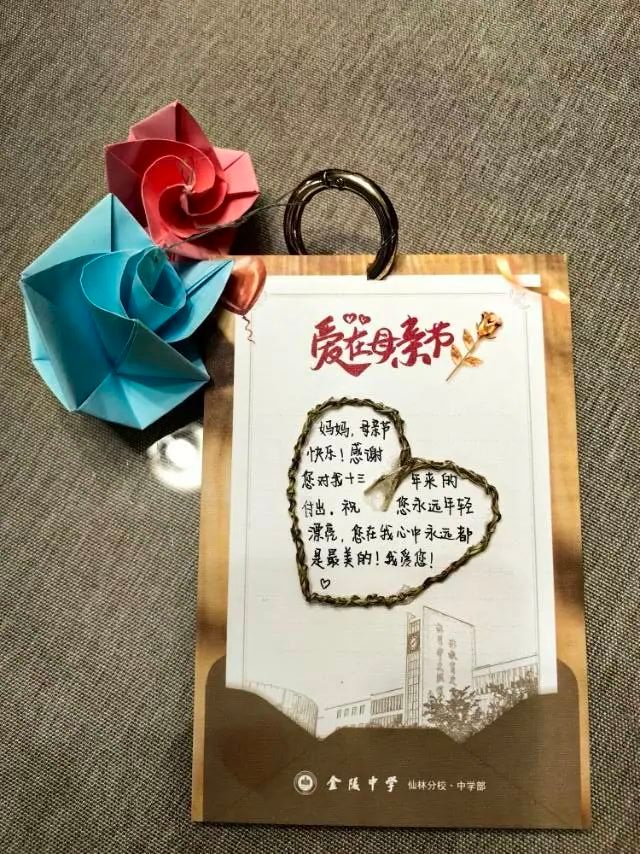 爱在母亲节
妈妈，母亲节
快乐！感谢
您对我十三年来的
付出，祝您永远年轻
漂亮，您在我心中永远都
是最美的！我爱您！
金陵中学 仙林分校·中学部